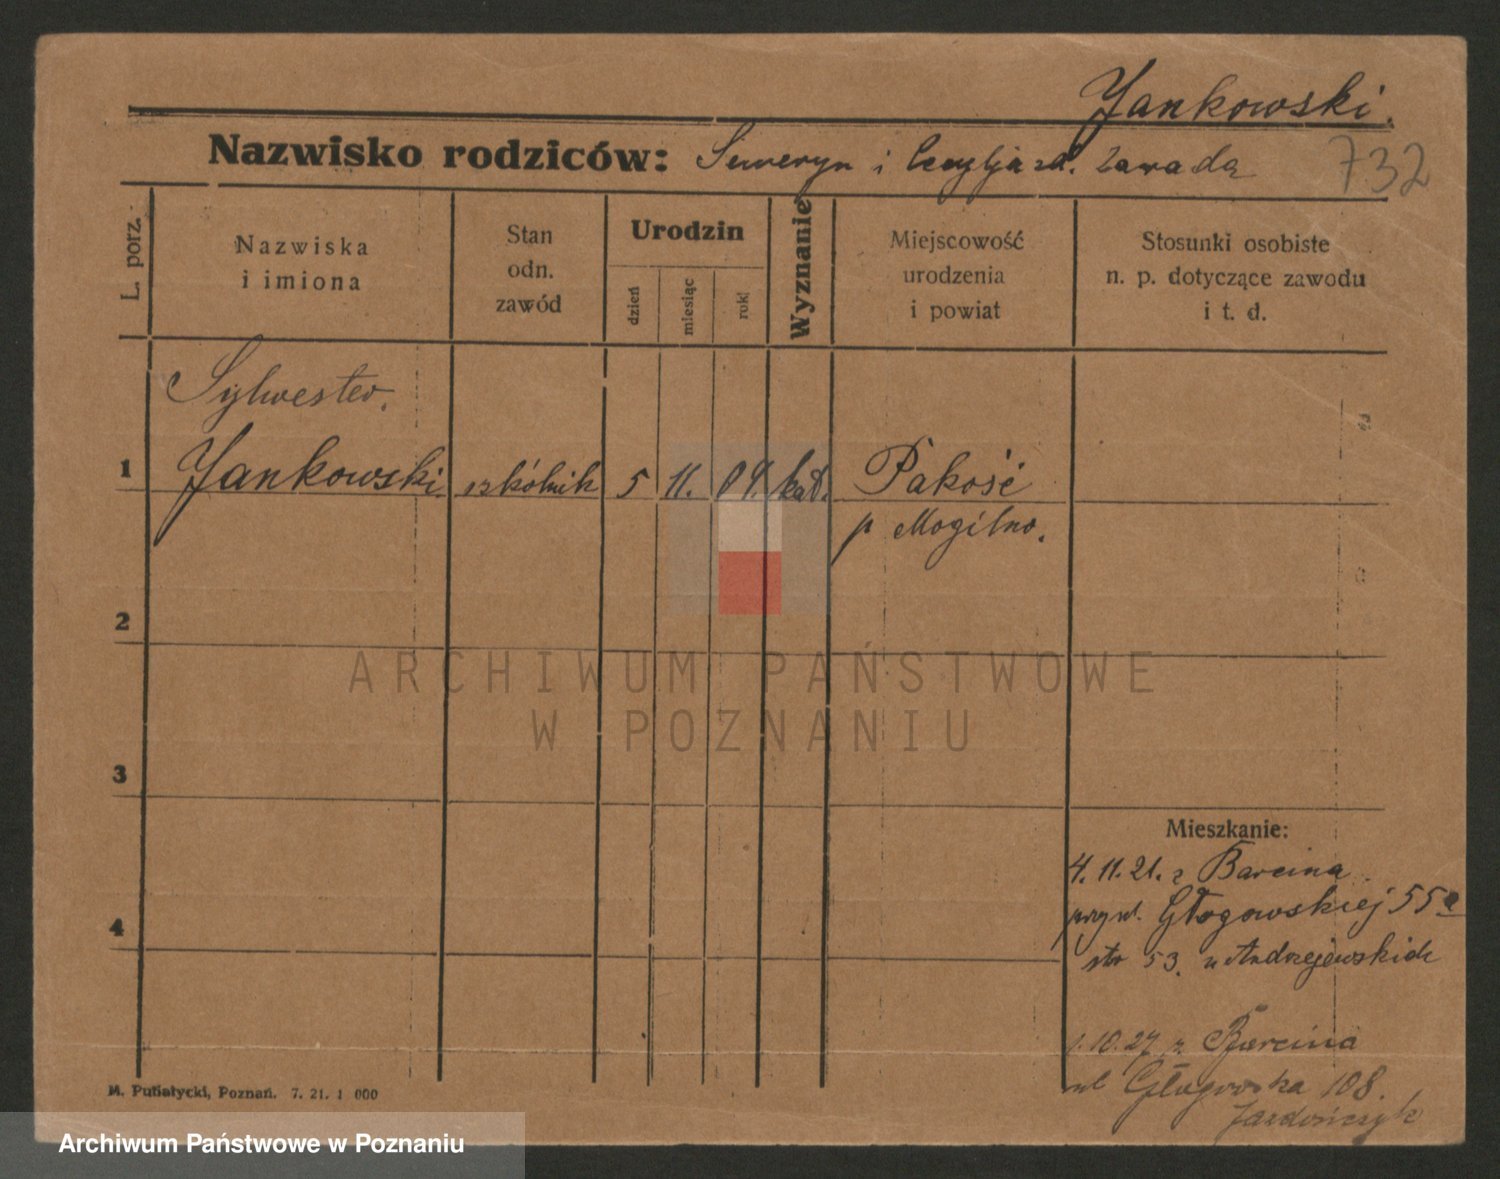 Jankowski.
Nazwisko rodziców: Seweryn i Cecylja zd. Zawada
732
L. porz.
Nazwiska
i imiona
Stan
odn.
zawód
Urodzin
dzień
miesiąc
rok
Wyznanie
Miejscowość
urodzenia
i powiat
Stosunki osobiste
n. p. dotyczące zawodu
i t. d.
Sylwester.
1 Jankowski szkólnik 5 11. 09. kat. Pakość
p Mogilno.
2
ARCHIWUM PAŃSTWOWE
W POZNANIU
3
Mieszkanie:
4. 11. 21. z Barcina
przy ul. Głogowskiej 55a
4
str 53. u Andrzejewskich
1. 10. 27 z Barcina
ul Głogowska 108.
M. Putiatycki, Poznań. 7. 21. 1 000
Archiwum Państwowe w Poznaniu